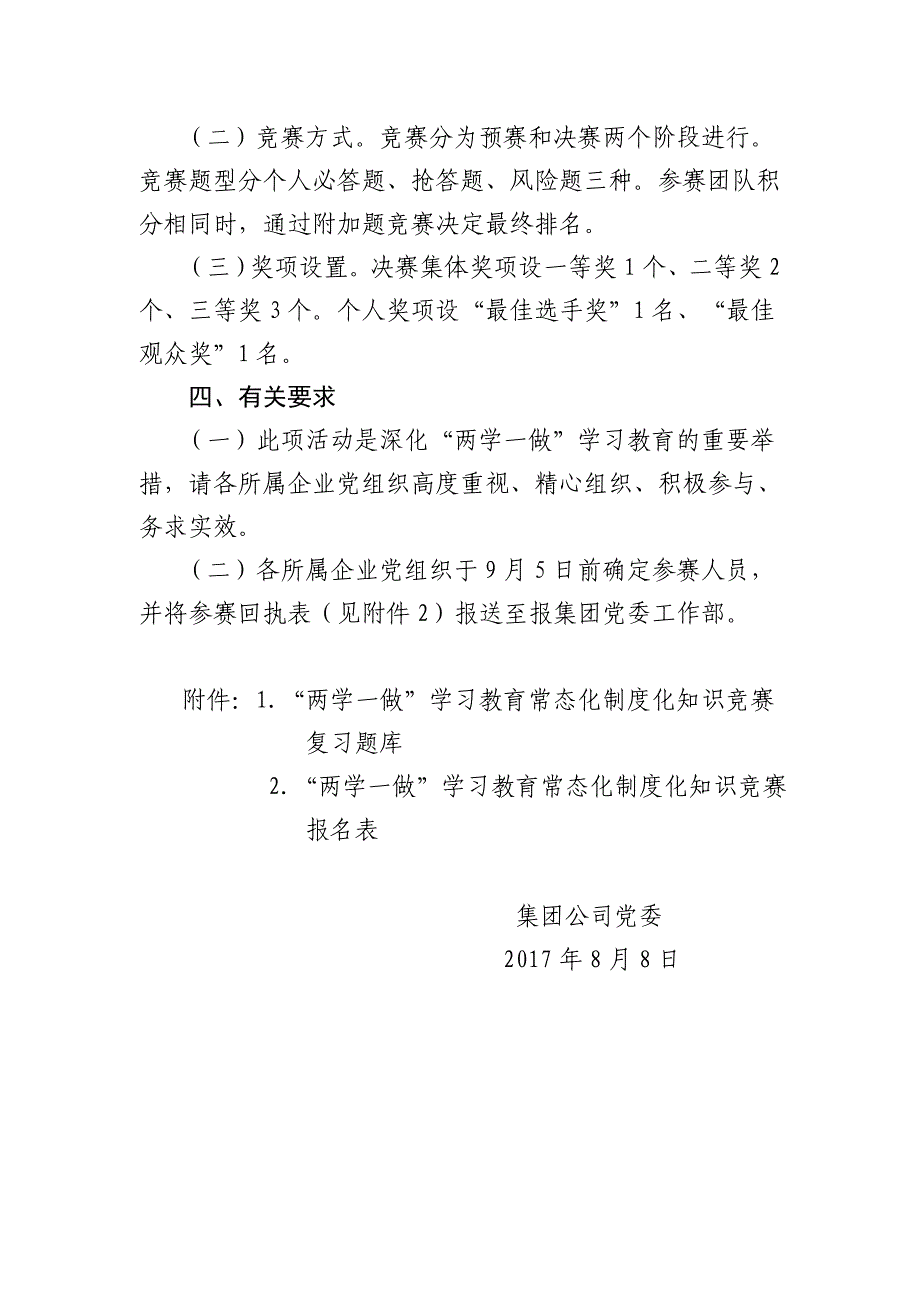 （二）竞赛方式。竞赛分为预赛和决赛两个阶段进行。
竞赛题型分个人必答题、抢答题、风险题三种。参赛团队积
分相同时，通过附加题竞赛决定最终排名。
（三）奖项设置。决赛集体奖项设一等奖1个、二等奖2
个、三等奖3个。个人奖项设“最佳选手奖”1名、“最佳
观众奖”1名。
四、有关要求
（一）此项活动是深化“两学一做”学习教育的重要举
措，请各所属企业党组织高度重视、精心组织、积极参与、
务求实效。
（二）各所属企业党组织于9月5日前确定参赛人员，
并将参赛回执表（见附件2）报送至报集团党委工作部。
附件：1．“两学一做”学习教育常态化制度化知识竞赛
复习题库
2．“两学一做”学习教育常态化制度化知识竞赛
报名表
集团公司党委
2017年8月8日